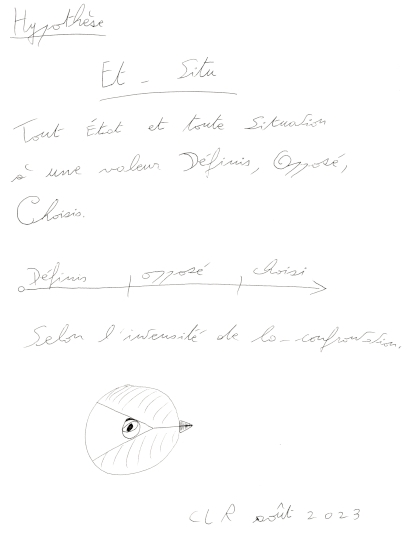 Hypothèse
Et - Situ
Tout État et toute Situation
à une valeur Définis, Opposé,
Choisis.
Définis opposé choisi
Selon l'intensité de la - confrontation.
CLR août 2023